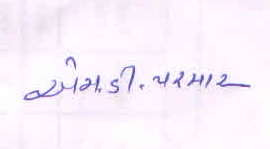 એમ.ડી.પરમાર